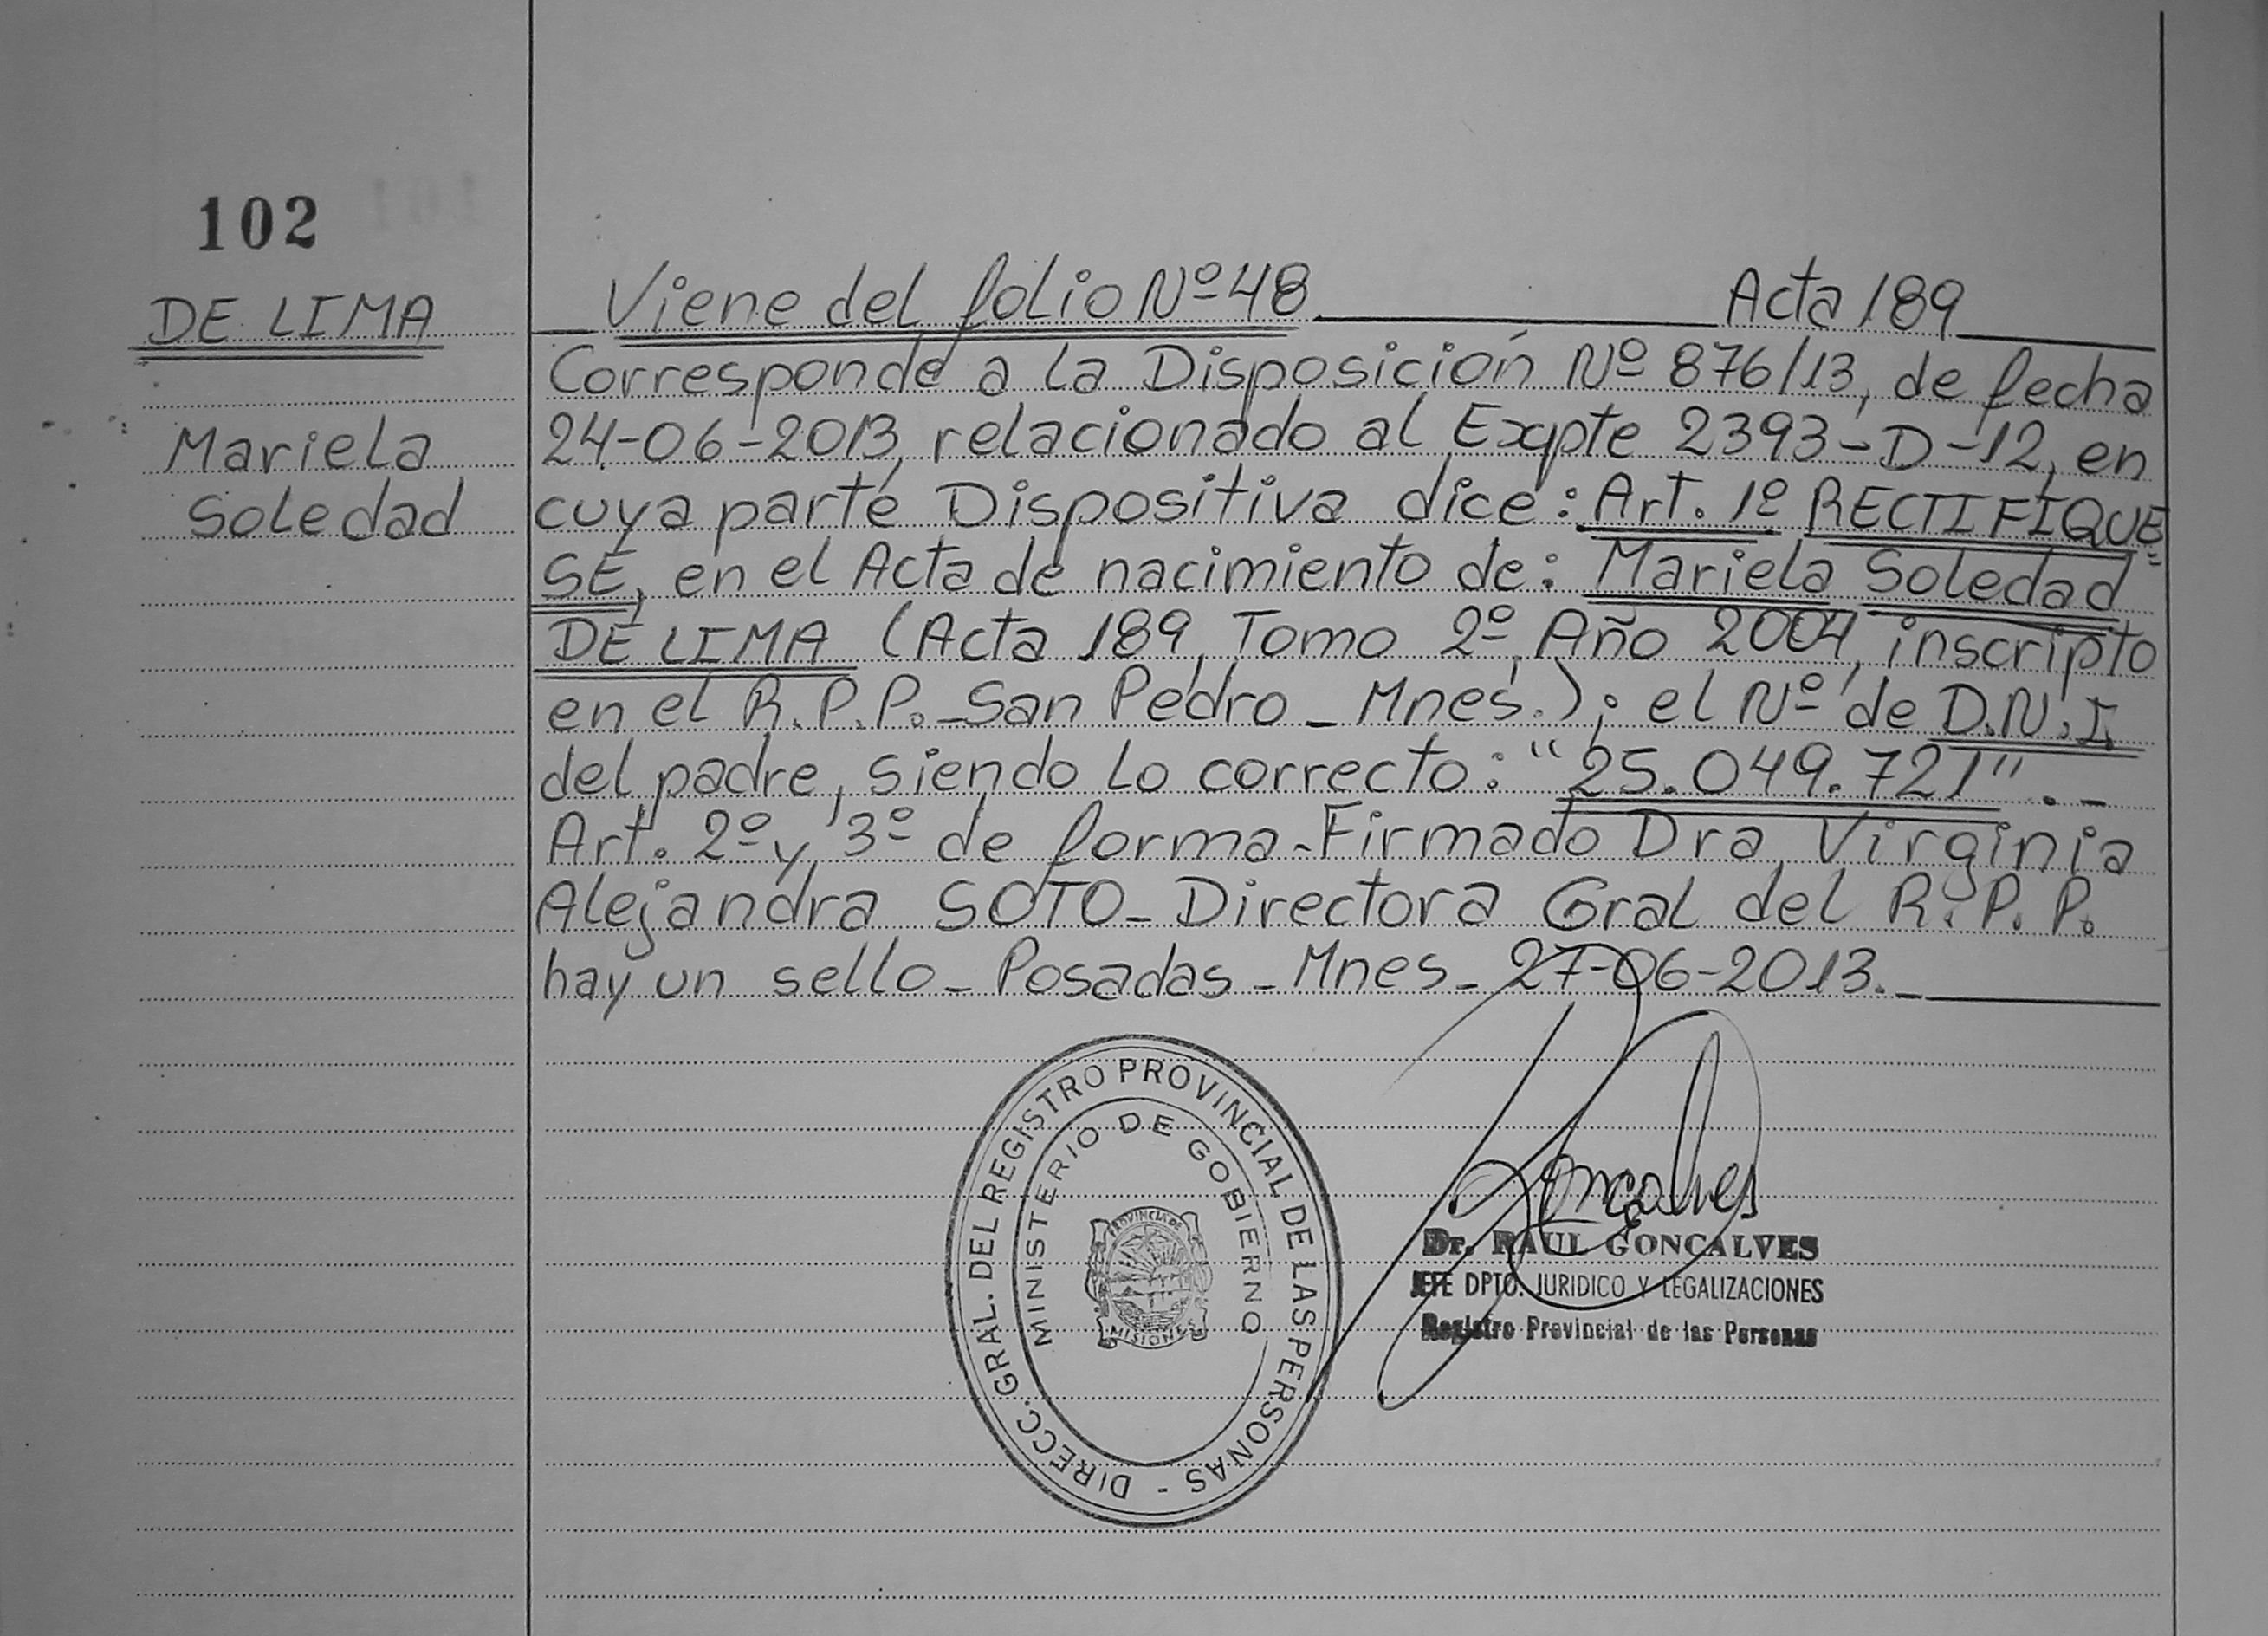 102
DE LIMA
Mariela
Soledad
Viene del folio Nº 48 Acta 189
Corresponde a la Disposición Nº 876/13, de fecha
24-06-2013, relacionado al Expte 2393-D-12, en
cuya parte Dispositiva dice: Art. 1º RECTIFIQUE-
SE, en el Acta de nacimiento de: Mariela Soledad
DE LIMA (Acta 189, Tomo 2º, Año 2004, inscripto
en el R.P.P. - San Pedro - Mnes.); el Nº de D.N.I.
del padre, siendo lo correcto: "25.049.721". -
Art. 2º y 3º de forma - Firmado Dra, Virginia
Alejandra SOTO - Directora Gral del R.P.P.
hay un sello - Posadas - Mnes - 27-06-2013. -
DIRECC. GRAL. DEL REGISTRO PROVINCIAL DE LAS PERSONAS -
MINISTERIO DE GOBIERNO
PROVINCIA DE
MISIONES
Gonçalves
Dr. RAUL GONCALVES
JEFE DPTO. JURIDICO Y LEGALIZACIONES
Registro Provincial de las Personas